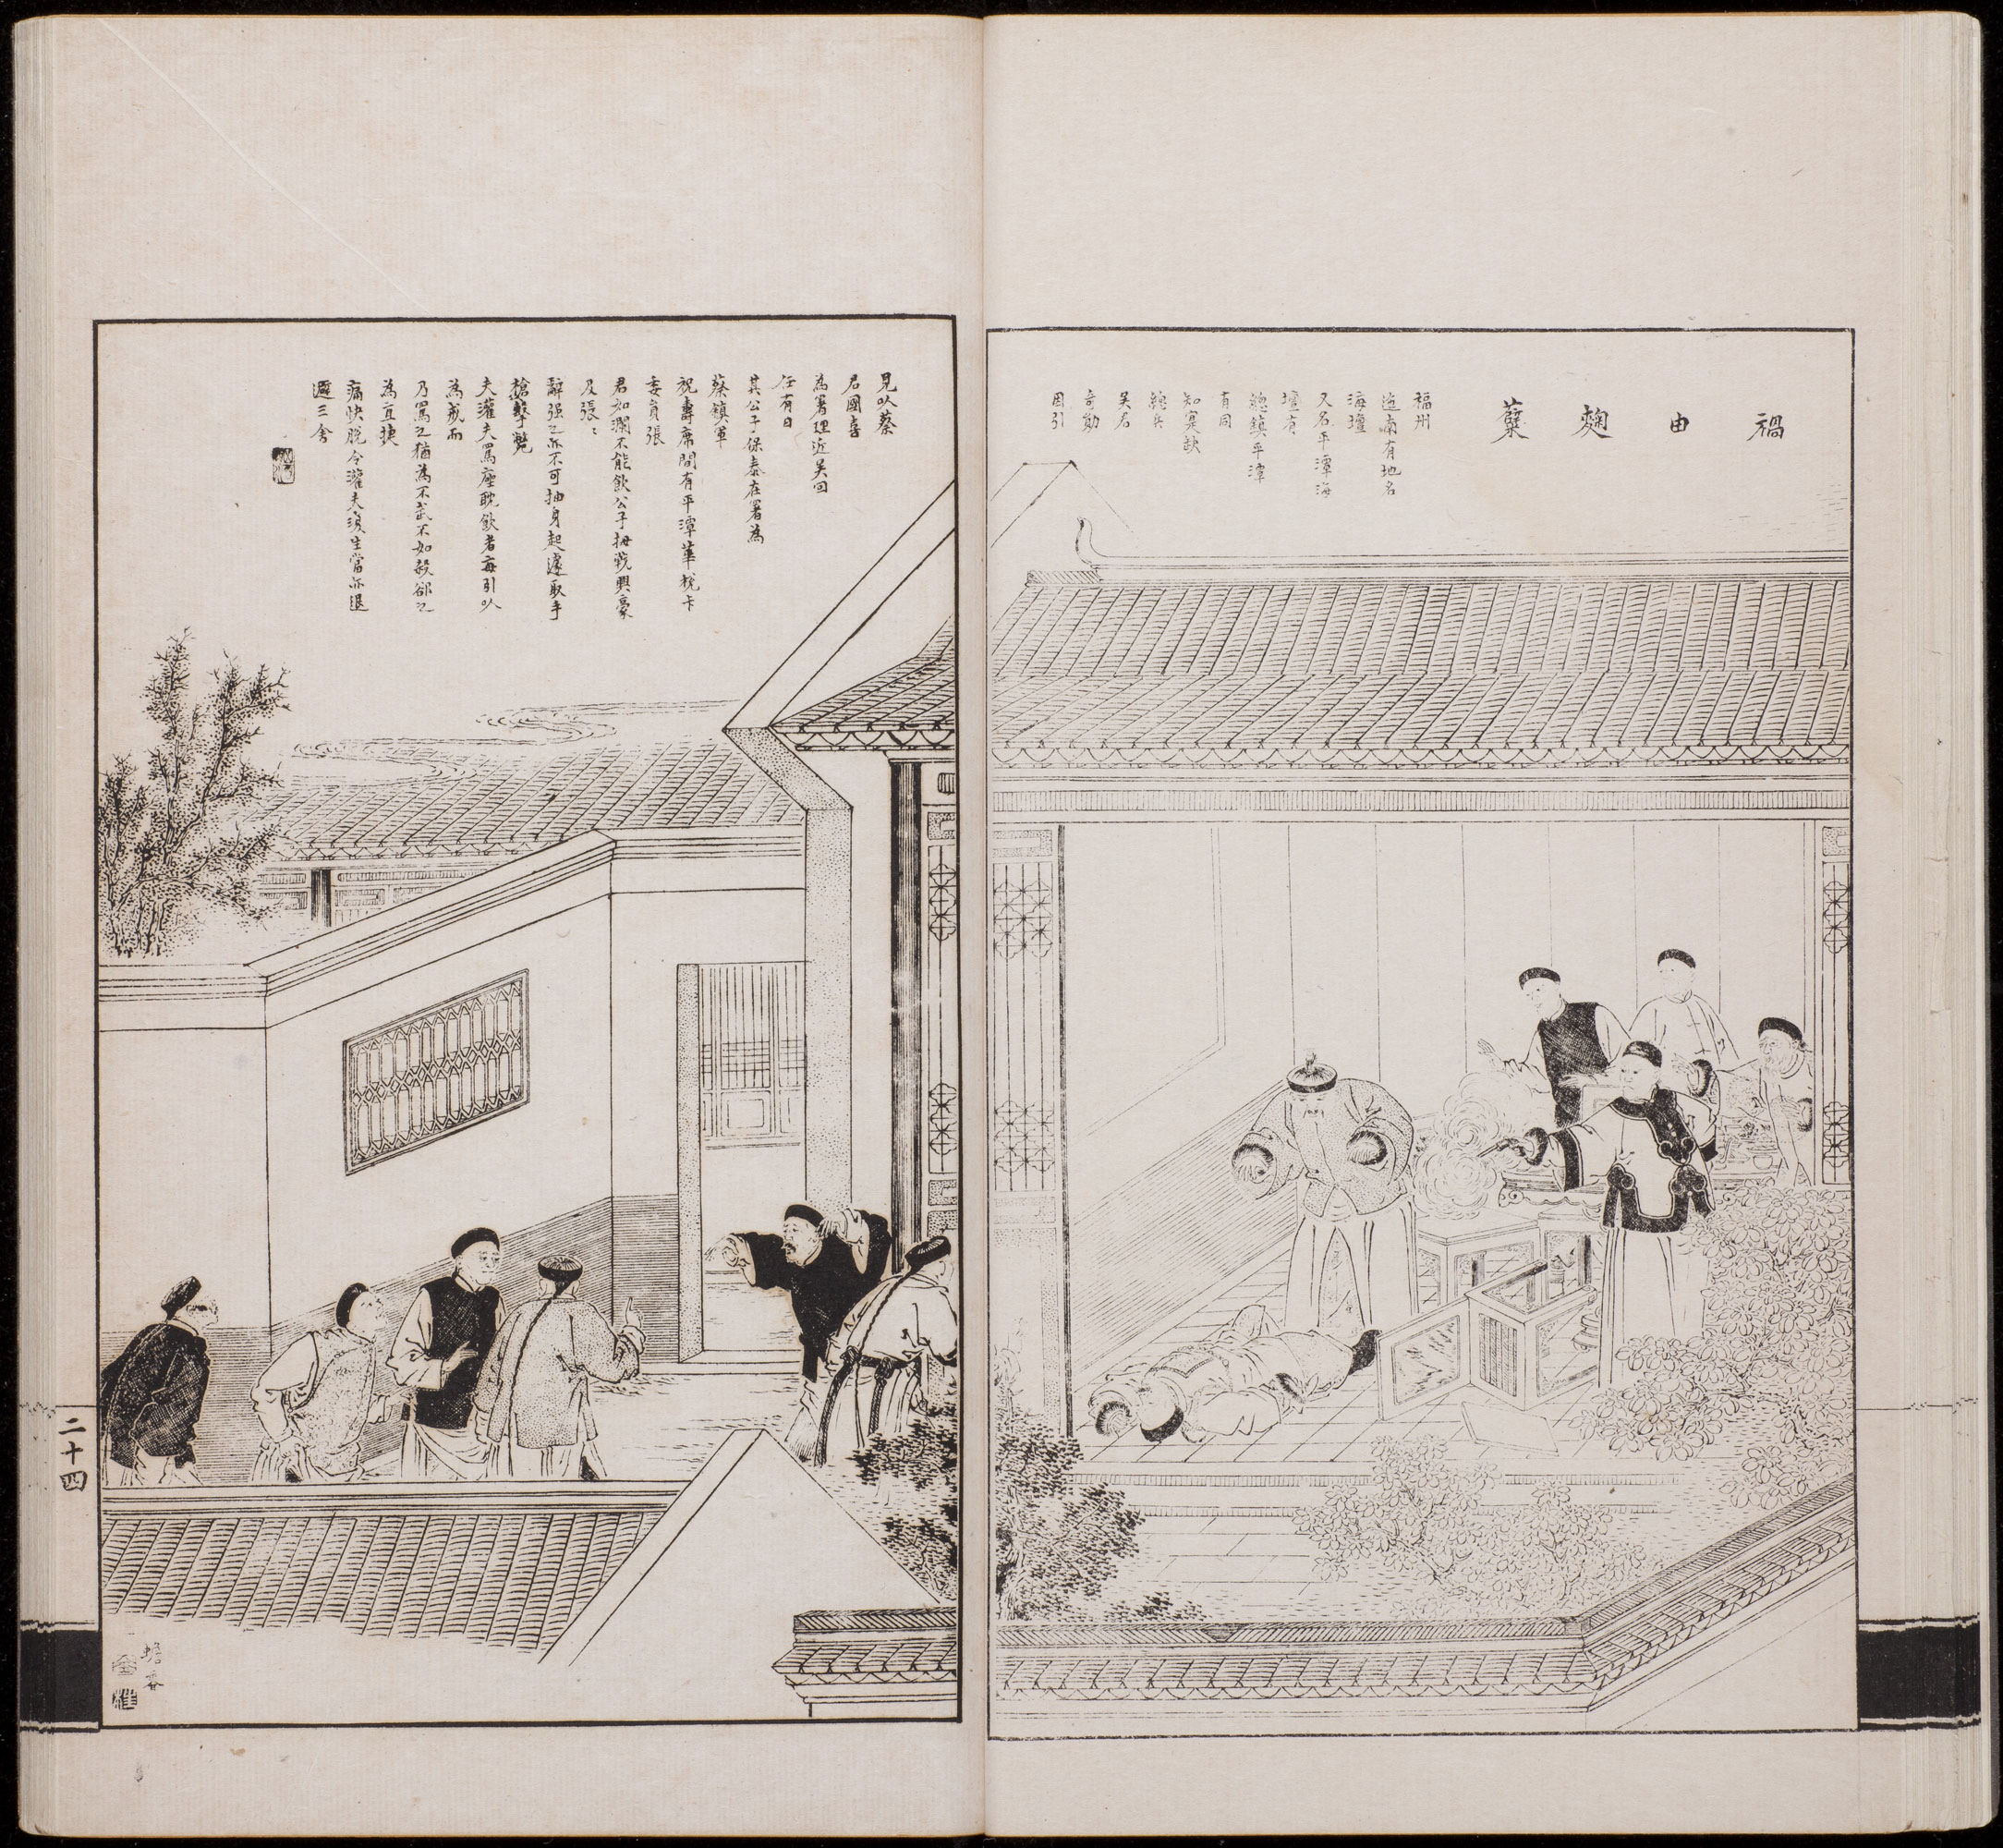 禍由麴櫱
福州
迤南有地名
海壇
又名平潭海
壇有
總鎮平潭
有同
知寔缺
總兵
吴君
奇勳
因引
見以蔡
君國喜
為署理近吴回
任有日
其公子保泰在署為
蔡鎮軍
祝壽席間有平潭華稅卡
委員張
君如瀾不能飲公子拇戰興豪
及張〻
辭强之亦不可抽身起遽取手
槍擊斃
夫灌夫罵座耽飲者每引以
為戒而
乃罵之猶為不武不如殺卻之
為直捷
痛快脫令灌夫復生當亦退
避三舍
二十四
蟾香